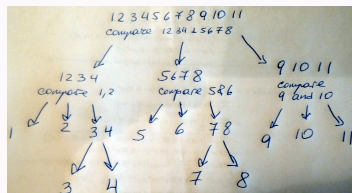 1 2 3 4 5 6 7 8 9 10 11
compare 1234 & 5678
1 2 3 4
compare 1,2
5 6 7 8
compare 5&6
9 10 11
compare
9 and 10
1 2 3 4 5 6 7 8 9 10 11
3 4 7 8